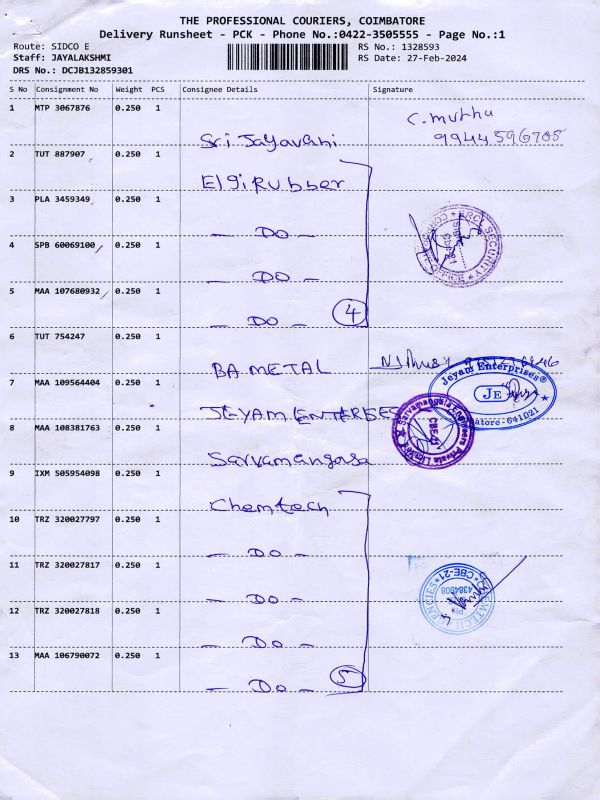 THE PROFESSIONAL COURIERS, COIMBATORE
Delivery Runsheet - PCK - Phone No.:0422-3505555 - Page No.:1
Route: SIDCO E
RS No.: 1328593
Staff: JAYALAKSHMI
RS Date: 27-Feb-2024
DRS No.: DCJB132859301
S No Consignment No Weight PCS Consignee Details Signature
1 MTP 3067876 0.250 1 Sri Jayavahi C. Muthu
9944596705
2 TUT 887907 0.250 1 Elgi Rubber
3 PLA 3459349 0.250 1 - DO -
4 SPB 60069100 0.250 1 - DO -
5 MAA 107680932 0.250 1 - DO - 4
6 TUT 754247 0.250 1 BA METAL
7 MAA 109564404 0.250 1 JEYAM ENTERSES
Jeyam Enterprises®
JE
8 MAA 108381763 0.250 1 Sarvamangasa
Sarvamangala Engineers Private Limited
9 IXM 505954098 0.250 1 Chemtech
10 TRZ 320027797 0.250 1 - DO -
11 TRZ 320027817 0.250 1 - DO -
CBE-21
12 TRZ 320027818 0.250 1 - DO -
13 MAA 106790072 0.250 1 - DO - 5